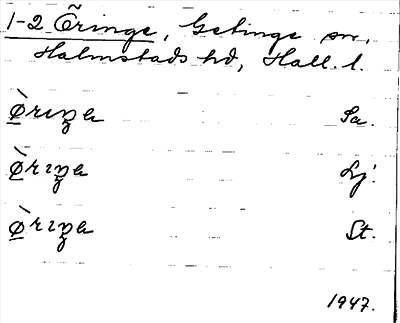 1-2 Öringe, Getinge sn,
Halmstads hd, Hall. l.
ø̀rıŋa Sa.
ø̀rıŋa Lj.
ø̀rıŋa St.
1947.